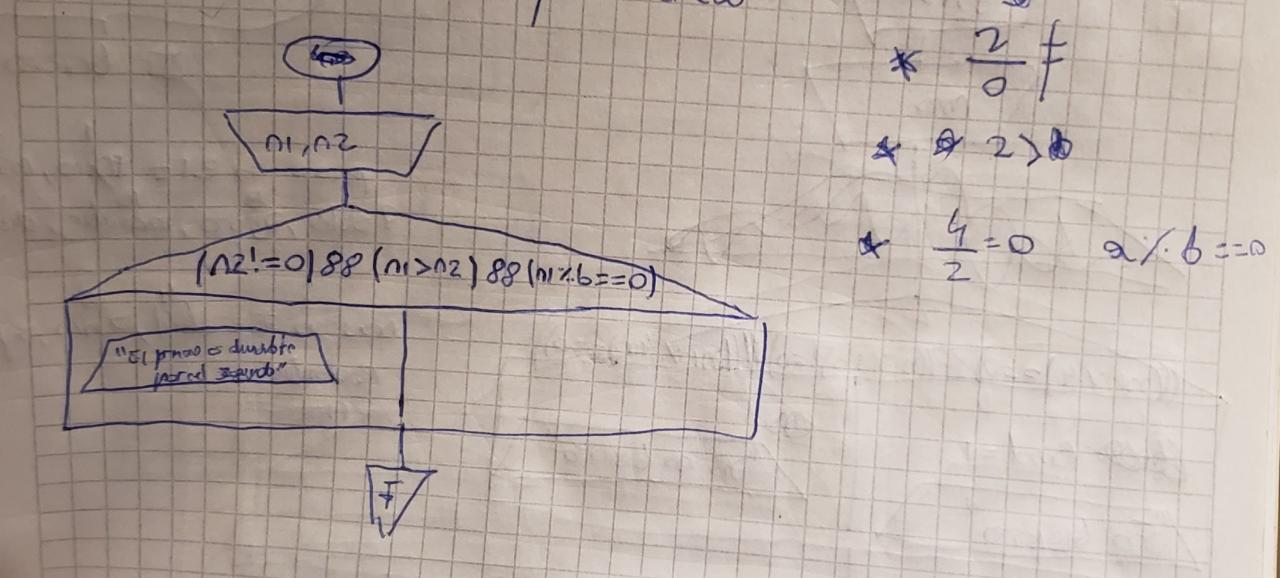 n1, n2
(n2!=0) && (n1>n2) && (n1%b==0)
"El primero es divisible
por el segundo"
F
* 2/0 ∄
* 2>
* 4/2=0 a%b==0